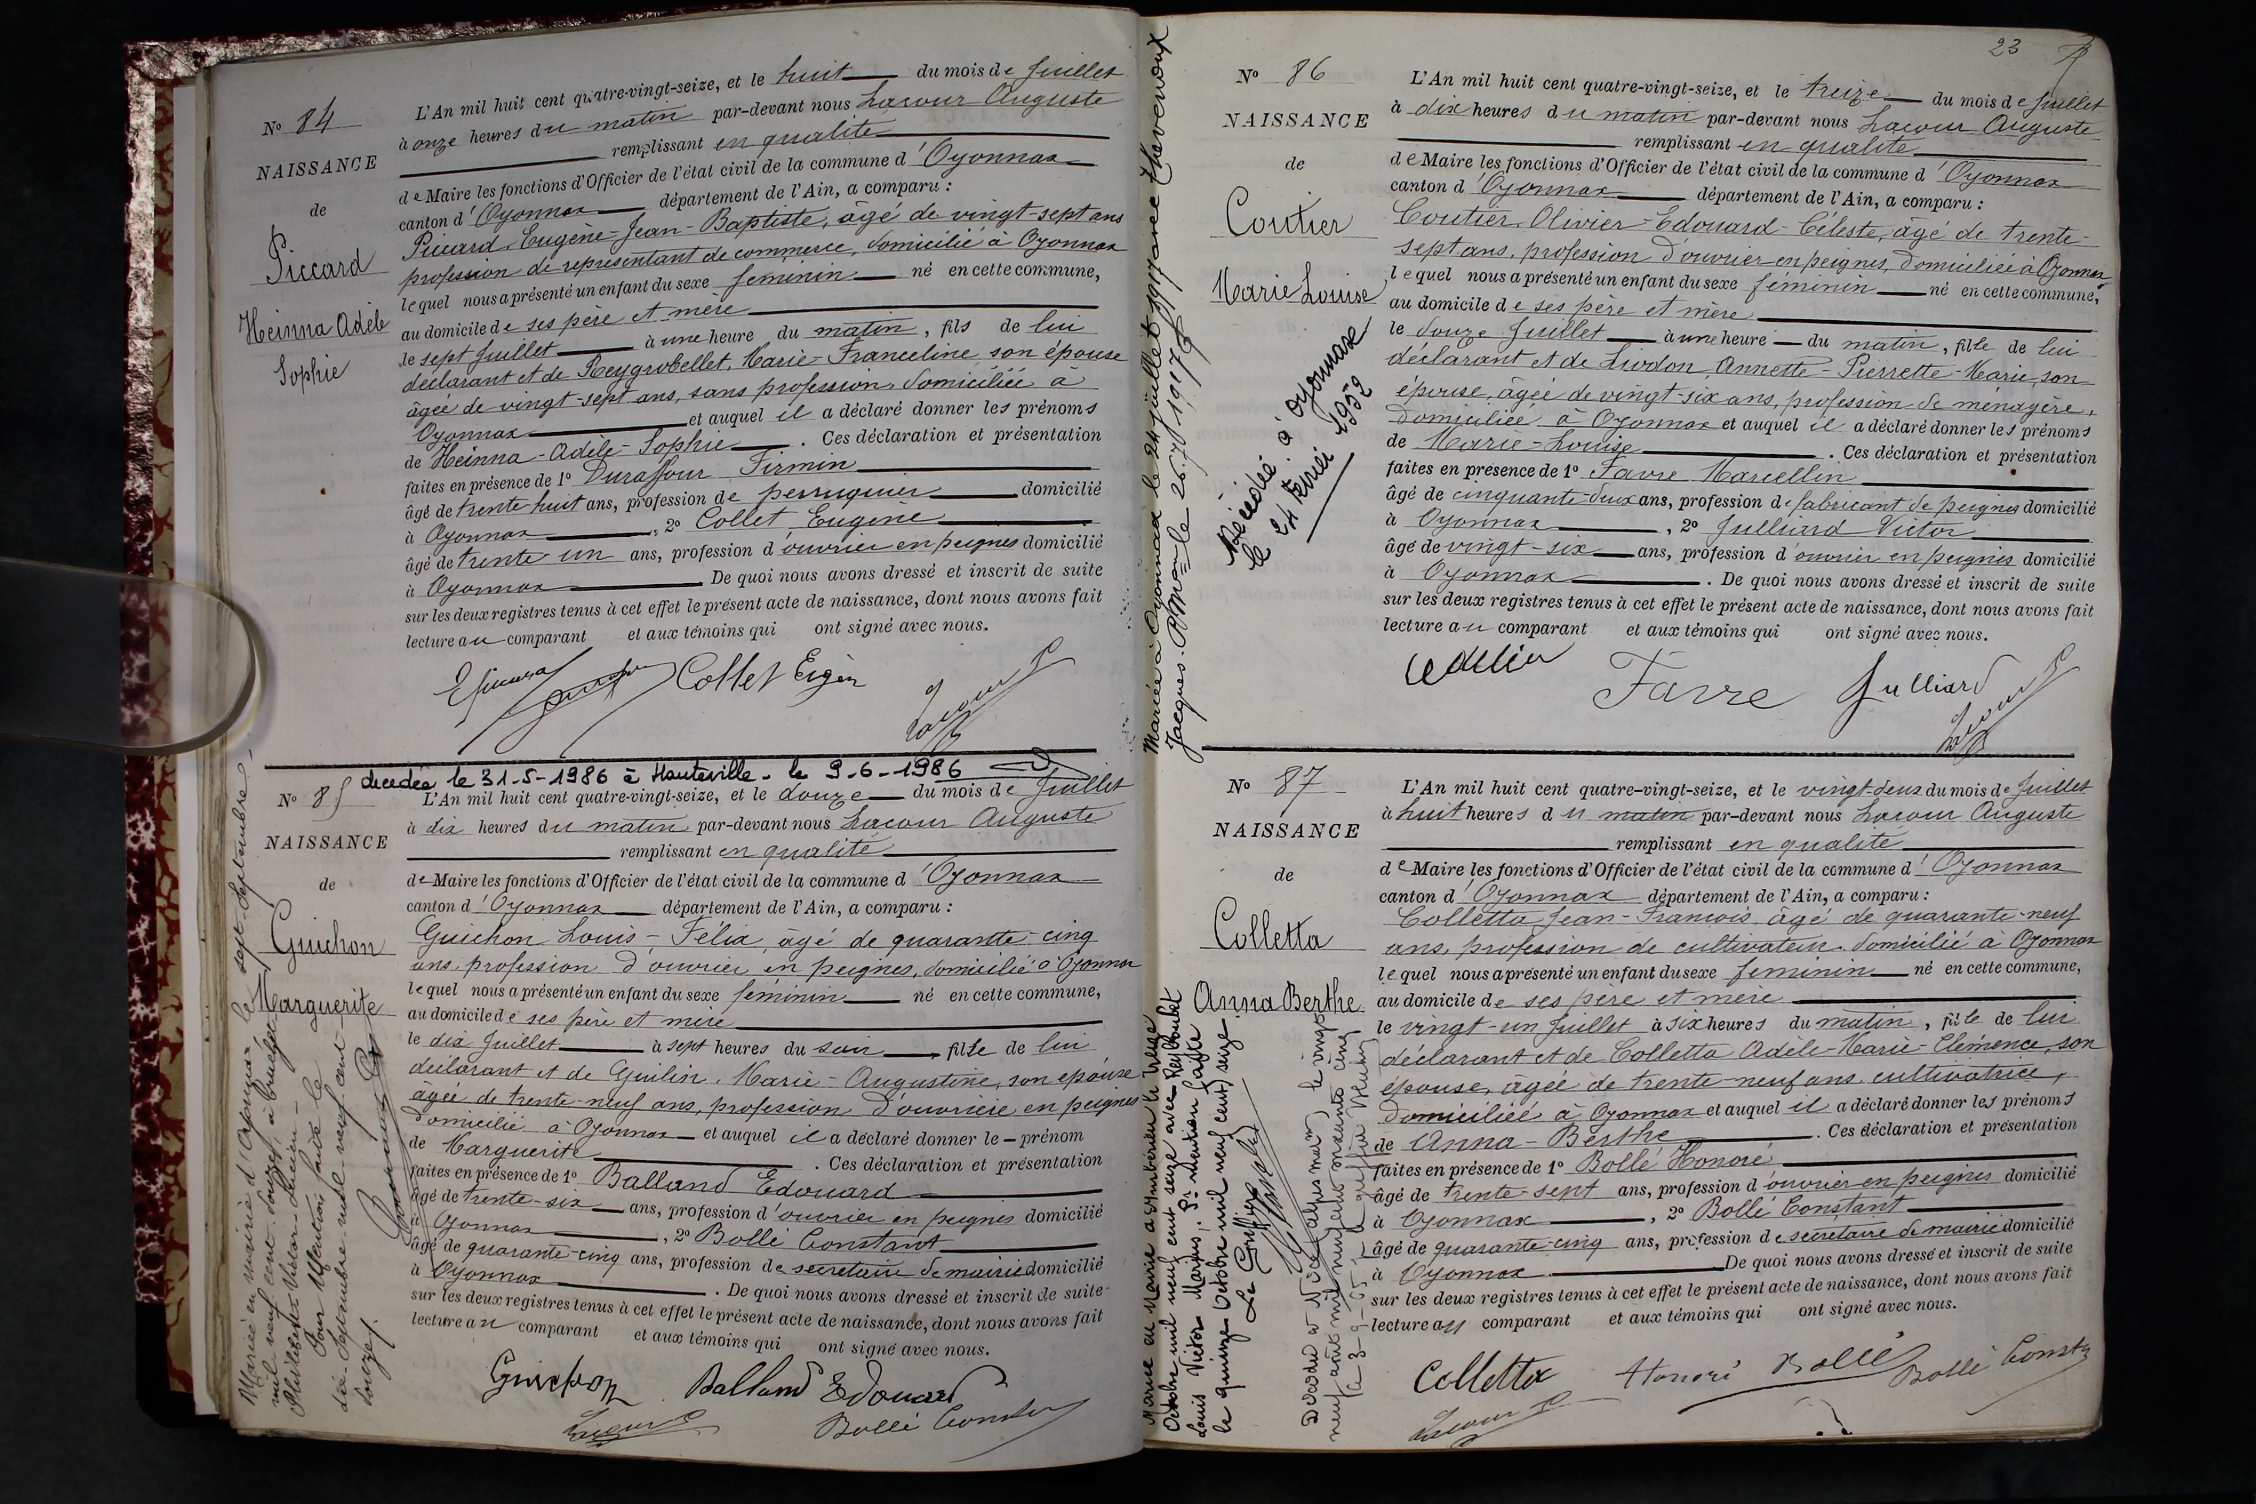 N° 84
NAISSANCE
de
Piccard
Heinna Adèle
Sophie
L'An mil huit cent quatre-vingt-seize, et le huit du mois de Juillet
à onze heures du matin par-devant nous Lacour Auguste
remplissant en qualité
de Maire les fonctions d'Officier de l'état civil de la commune d'Oyonnax
canton d'Oyonnax département de l'Ain, a comparu :
Piccard, Eugène-Jean-Baptiste, âgé de vingt-sept ans
profession de représentant de commerce, domicilié à Oyonnax
lequel nous a présenté un enfant du sexe féminin né en cette commune,
au domicile de ses père et mère
le sept Juillet à une heure du matin, fils de lui
déclarant et de Reygrobellet, Marie-Franceline son épouse
âgée de vingt-sept ans, sans profession domiciliée à
Oyonnax et auquel il a déclaré donner les prénoms
de Heinna-Adèle-Sophie. Ces déclaration et présentation
faites en présence de 1° Duraffour Firmin
âgé de trente huit ans, profession de perruquier domicilié
à Oyonnax, 2° Collet Eugène
âgé de trente un ans, profession d'ouvrier en peignes domicilié
à Oyonnax De quoi nous avons dressé et inscrit de suite
sur les deux registres tenus à cet effet le présent acte de naissance, dont nous avons fait
lecture au comparant et aux témoins qui ont signé avec nous.
Collet
décédée le 31-5-1986 à Hauteville - le 9-6-1986
N° 85
NAISSANCE
de
Guichon
Marguerite
L'An mil huit cent quatre-vingt-seize, et le douze du mois de Juillet
à dix heures du matin par-devant nous Lacour Auguste
remplissant en qualité
de Maire les fonctions d'Officier de l'état civil de la commune d'Oyonnax
canton d'Oyonnax département de l'Ain, a comparu :
Guichon Louis-Félix, âgé de quarante-cinq
ans, profession d'ouvrier en peignes, domicilié à Oyonnax
lequel nous a présenté un enfant du sexe féminin né en cette commune,
au domicile de ses père et mère
le dix Juillet à sept heures du soir, fille de lui
déclarant et de Guilin, Marie-Augustine, son épouse
âgée de trente-neuf ans, profession d'ouvrière en peignes
domicilié à Oyonnax et auquel il a déclaré donner le prénom
de Marguerite. Ces déclaration et présentation
faites en présence de 1° Balland Edouard
âgé de trente-six ans, profession d'ouvrier en peignes domicilié
à Oyonnax, 2° Bollé Constant
âgé de quarante-cinq ans, profession de secrétaire de mairie domicilié
à Oyonnax. De quoi nous avons dressé et inscrit de suite
sur les deux registres tenus à cet effet le présent acte de naissance, dont nous avons fait
lecture au comparant et aux témoins qui ont signé avec nous.
Guichon Balland Edouard
Lacour Bollé Constant
Mariée en mairie d'Oyonnax le sept Septembre
mil neuf cent douze, à
Philibert Victor Lucien -
Pour Mention faite le
dix Septembre mil neuf cent
douze.
23
N° 86
NAISSANCE
de
Coutier
Marie Louise
L'An mil huit cent quatre-vingt-seize, et le treize du mois de Juillet
à dix heures du matin par-devant nous Lacour Auguste
remplissant en qualité
de Maire les fonctions d'Officier de l'état civil de la commune d'Oyonnax
canton d'Oyonnax département de l'Ain, a comparu :
Coutier, Olivier-Edouard-Céleste, âgé de trente-
sept ans, profession d'ouvrier en peignes, domiciliée à Oyonnax
lequel nous a présenté un enfant du sexe féminin né en cette commune,
au domicile de ses père et mère
le douze Juillet à une heure du matin, fille de lui
déclarant et de Livdon, Annette-Pierrette-Marie, son
épouse, âgée de vingt-six ans, profession de ménagère,
domiciliée à Oyonnax et auquel il a déclaré donner les prénoms
de Marie-Louise. Ces déclaration et présentation
faites en présence de 1° Favre Marcellin
âgé de cinquante-deux ans, profession de fabricant de peignes domicilié
à Oyonnax, 2° Julliard Victor
âgé de vingt-six ans, profession d'ouvrier en peignes domicilié
à Oyonnax. De quoi nous avons dressé et inscrit de suite
sur les deux registres tenus à cet effet le présent acte de naissance, dont nous avons fait
lecture au comparant et aux témoins qui ont signé avec nous.
Favre Julliard
Lacour
Mariée à Oyonnax le 24 juillet 1917 avec Thevenoux
Jacques. le 26.7.1917
Décédée à Oyonnax
le 24 Février 1952
N° 87
NAISSANCE
de
Colletta
Anna Berthe
L'An mil huit cent quatre-vingt-seize, et le vingt-deux du mois de Juillet
à huit heures du matin par-devant nous Lacour Auguste
remplissant en qualité
de Maire les fonctions d'Officier de l'état civil de la commune d'Oyonnax
canton d'Oyonnax département de l'Ain, a comparu :
Colletta Jean-François âgé de quarante-neuf
ans, profession de cultivateur, domicilié à Oyonnax
lequel nous a présenté un enfant du sexe féminin né en cette commune,
au domicile de ses père et mère
le vingt-un Juillet à six heures du matin, fille de lui
déclarant et de Colletta Adèle-Marie-Clémence, son
épouse, âgée de trente-neuf ans, cultivatrice,
domiciliée à Oyonnax et auquel il a déclaré donner les prénoms
de Anna-Berthe. Ces déclaration et présentation
faites en présence de 1° Bollé Honoré
âgé de trente-sept ans, profession d'ouvrier en peignes domicilié
à Oyonnax, 2° Bollé Constant
âgé de quarante-cinq ans, profession de secrétaire de mairie domicilié
à Oyonnax De quoi nous avons dressé et inscrit de suite
sur les deux registres tenus à cet effet le présent acte de naissance, dont nous avons fait
lecture au comparant et aux témoins qui ont signé avec nous.
Colletta Honoré Bollé Bollé Constant
Lacour
Mariée en Mairie à le treize
Octobre mil neuf cent seize avec
Louis Victor Marius. Pr mention faite
le quinze Octobre mil neuf cent seize.
Le Greffier
Décédée à Nice (Alpes mar.) le vingt
neuf août mil neuf cent soixante cinq